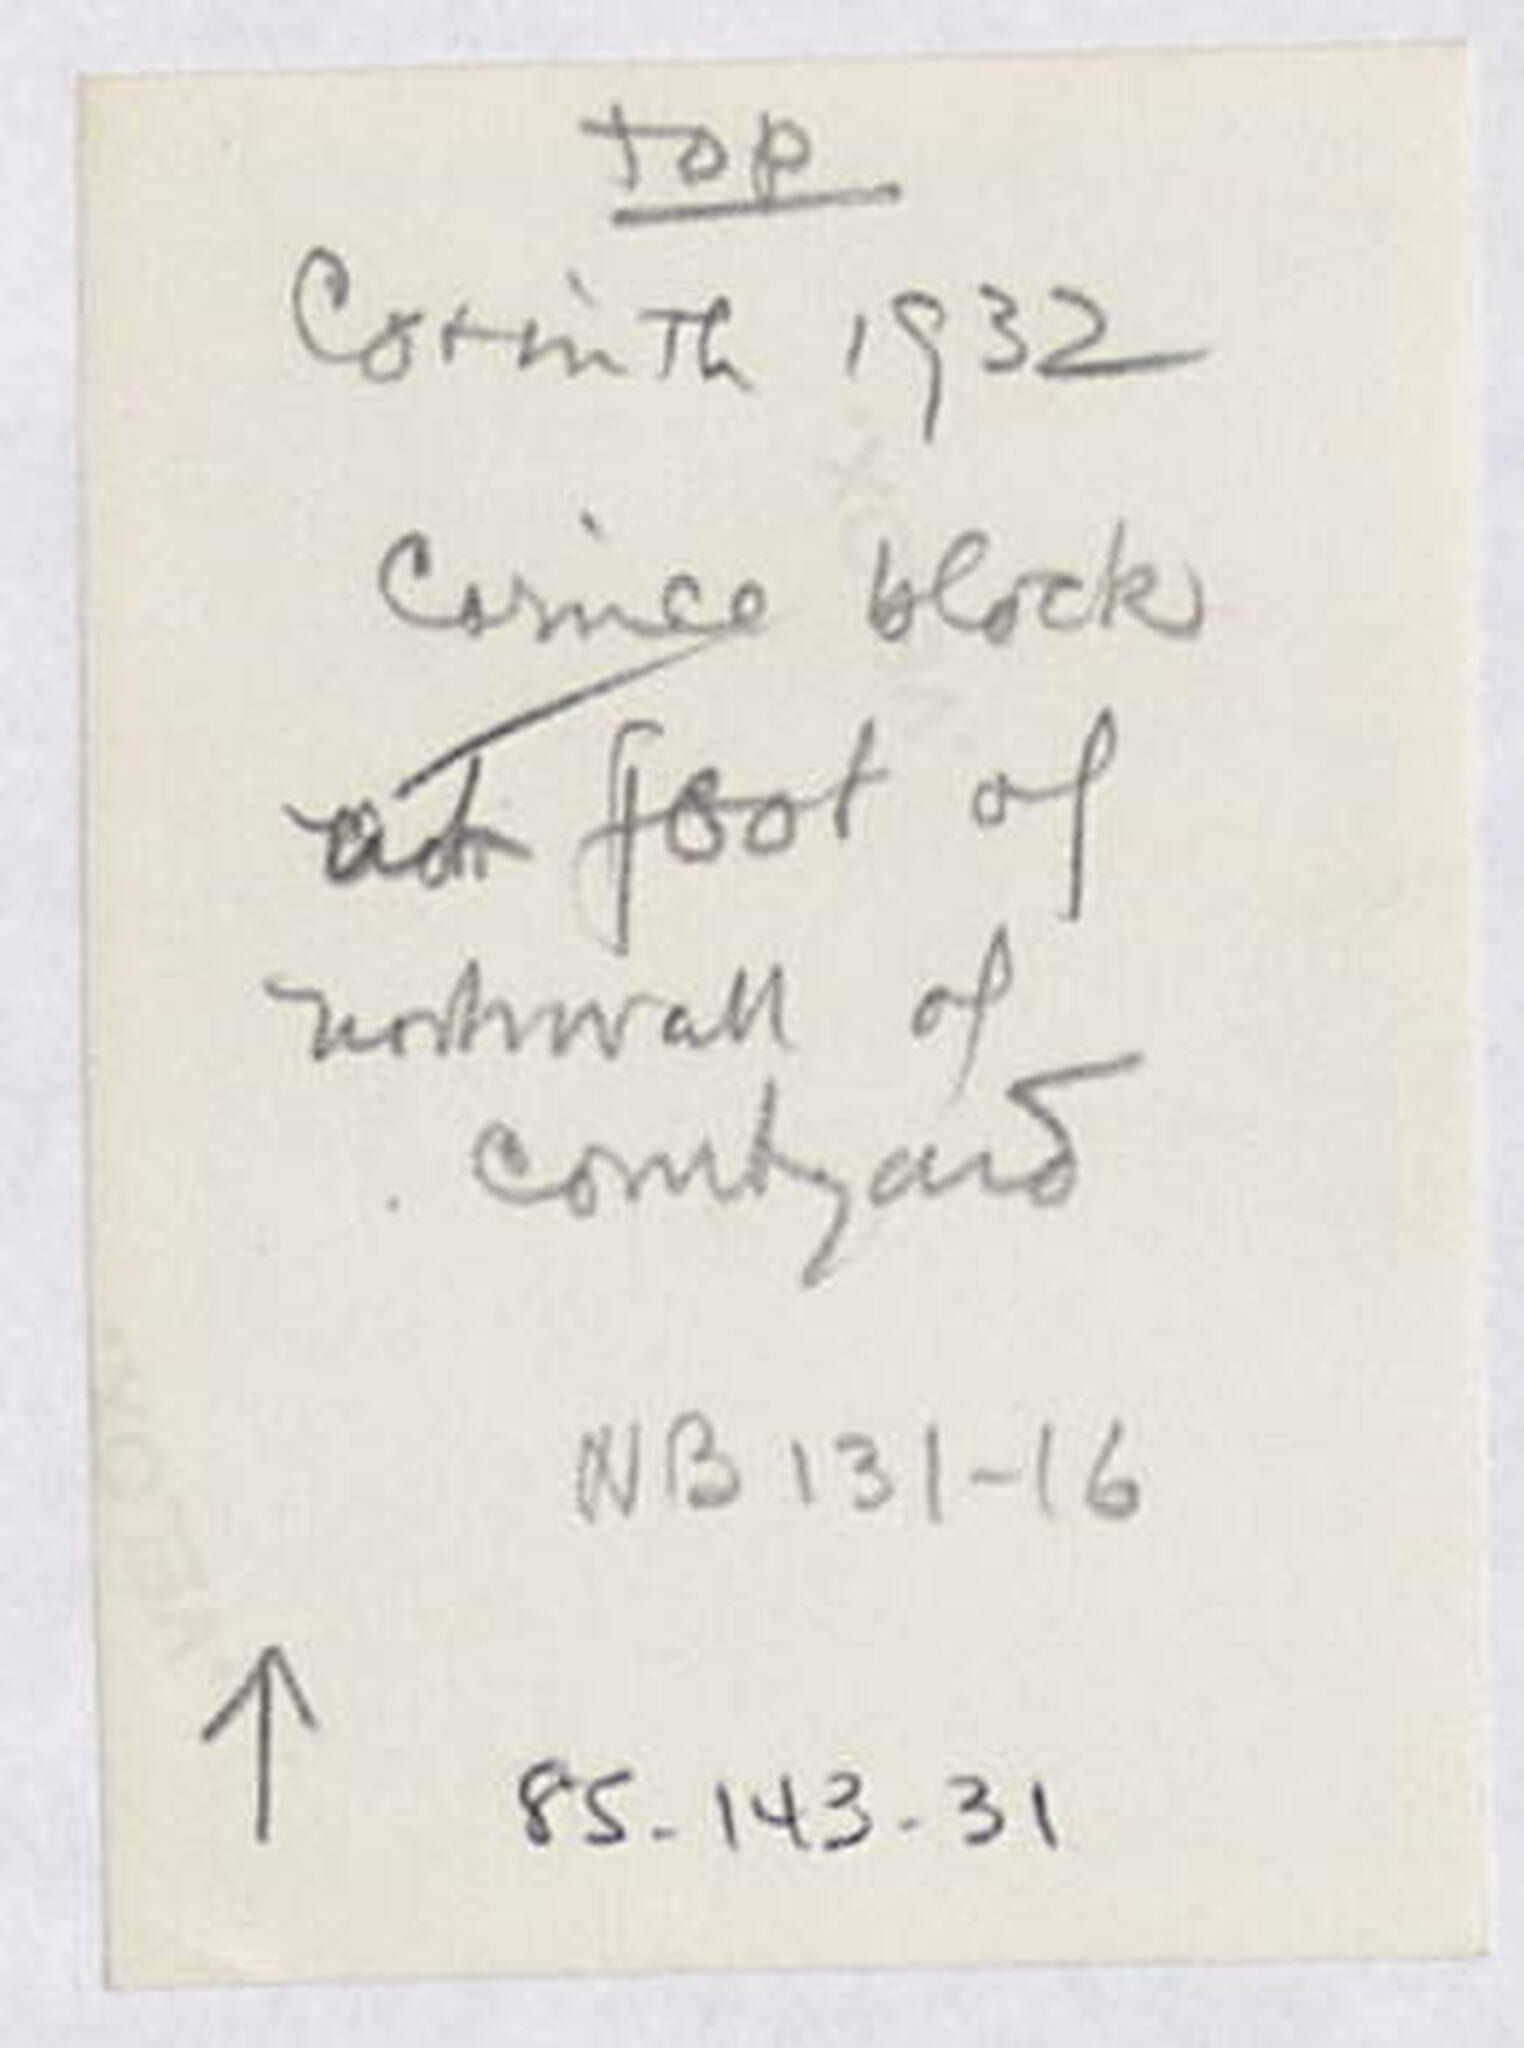 top
Corinth 1932
Cornice block
at foot of
north wall of
courtyard
NB 131-16
85-143-31